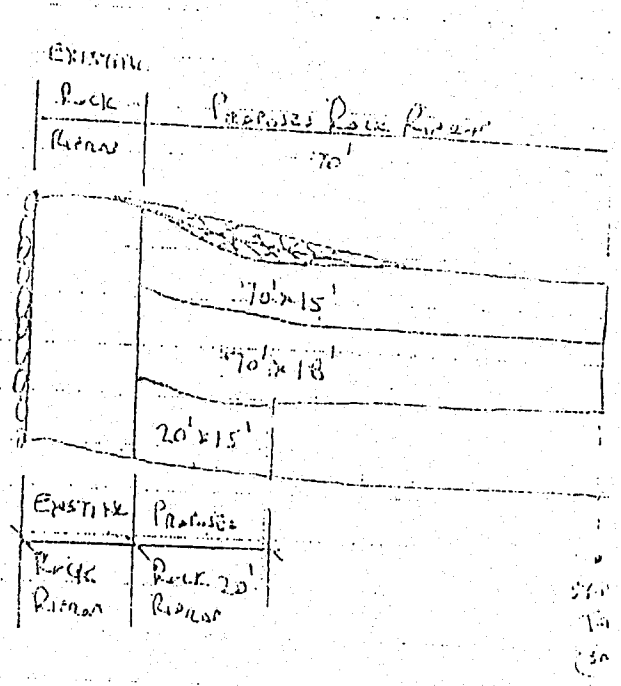 EXISTING
Rock
Riprap
Proposed Rock Riprap
70'
70' x 15'
70' x 18'
20' x 15'
Existing
Proposed
Rock
Riprap
Rock 20'
Riprap